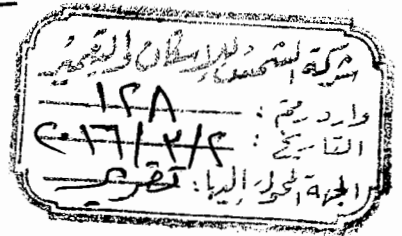 شركة الشمس للإسكان والتعمير
وارد رقم : ١٢٨
التاريخ : ٢٠١٦/٣/٢
الجهة المحول إليها : تقرير